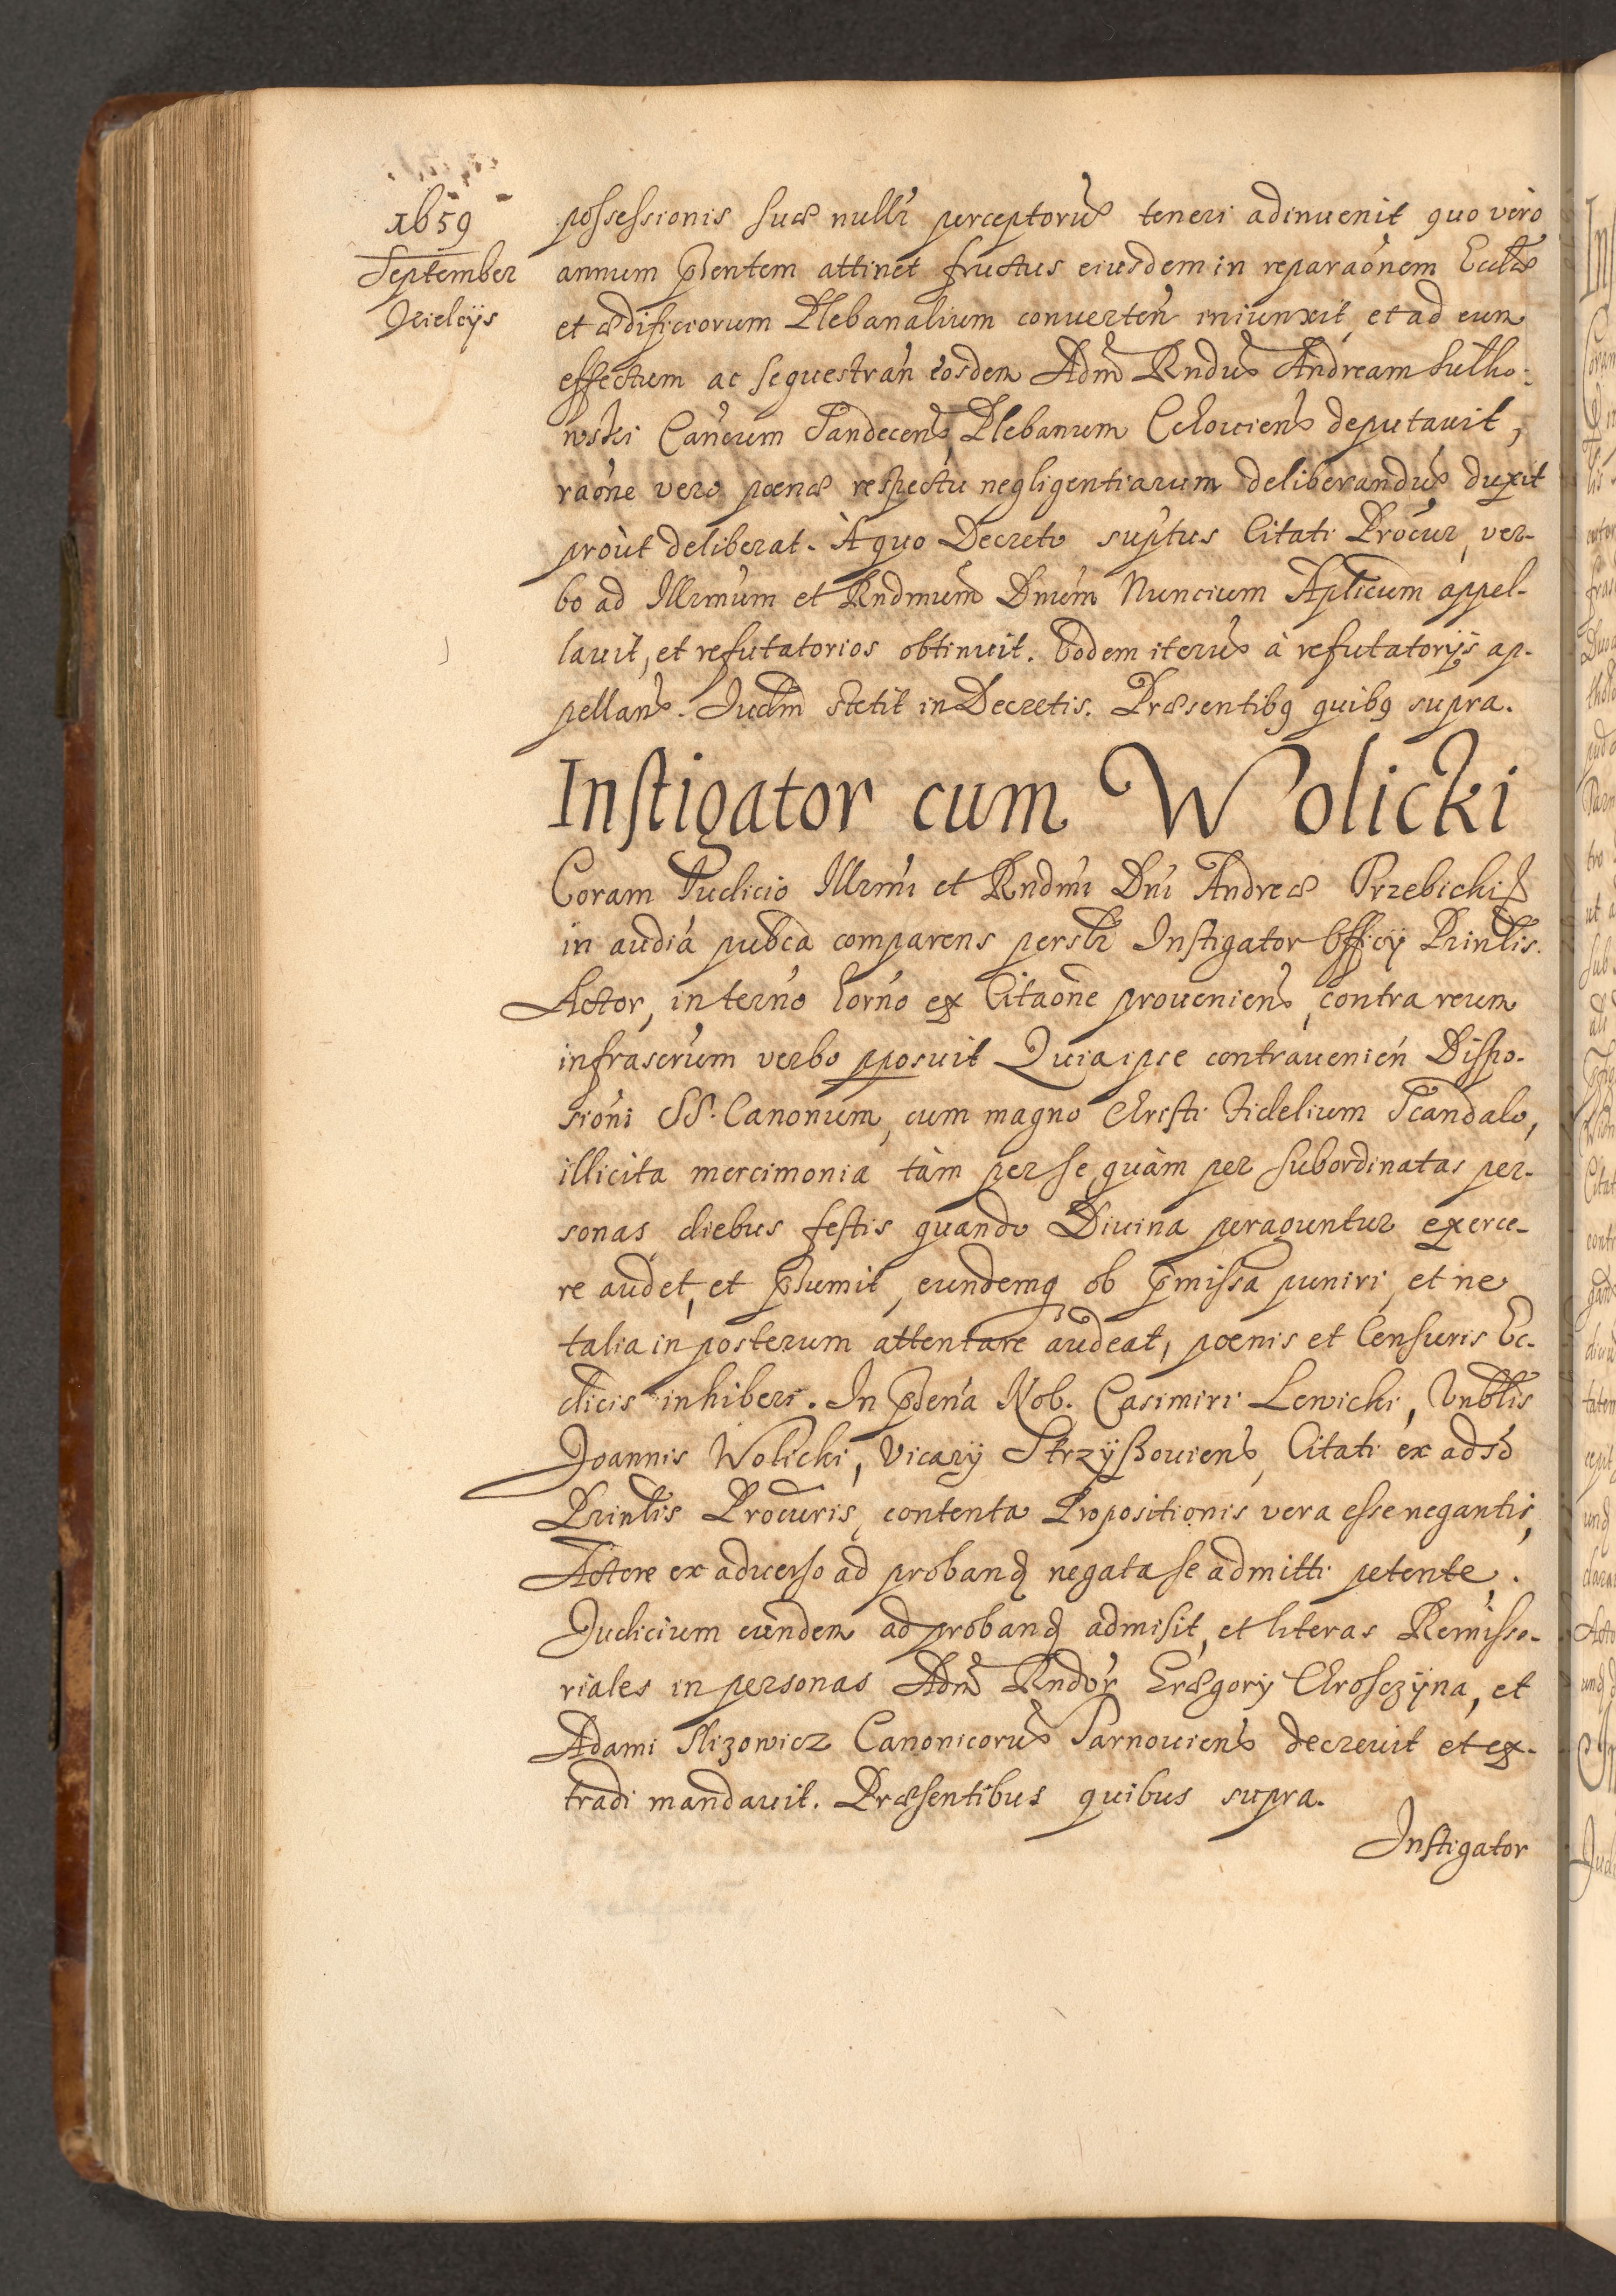 1659
September
Kielcÿs
possessionis suæ nullr perceptorũ teneri adinuenit quo verò
annum pñsentem attinet fructus eiusdem in reparaõnem Ecclæ
et ædificiorum Plebanalium conuerteñ iniunxit, et ad eum
effectum ac sequestrañ eosdem Adm̃ Rndũ Andream Sulho:
wski Cañcum Sandecens̃, Plebanum Cchouiens̃ deputauit,
raõne vero pœnæ respectu negligentiarum deliberandũ duxit
proùt deliberat. À quo Decreto suptus Citati Procur, ver-
bo ad Illrmum et Rndmum Dnum Nuncium Aplicum appel-
lauit, et refutatorios obtinuit. Eodem iterũ à refutatorijs ap-
pellans̃. Judm stetit in Decretis. Præsentibq quibq supra.
Instigator cum Wolicki
Coram Judicio Illrmi et Rndmi Dni Andreæ Trzebicki
in audia pubca comparens perslr Instigator Officÿ Prinlis.
Actor, in terno horno ex Citaõne proueniens̃, contra reum
infrascrum verbo pposuit Quia ipse contrauenień Dispo-
sioni SS. Canonum, cum magno Christi Fidelium Scandalo,
illicita mercimonia tàm per se, quàm per subordinatas per-
sonas diebus festis quando Diuina peraguntur exerce-
re audet, et pñsumit, eundemq ob pmissa puniri, et ne
talia in posterum attentare audeat, pœnis et Censuris Ec-
clicis inhiberi. In pñsena Nob. Casimiri Lewicki, Vnblis
Joannis Wolicki, Vicarÿ Strzÿßouiens̃, Citati ex adso
Prinlis Procuris, contenta Propositionis vera esse negantis,
Actore ex aduerso ad proband negata se admitti petente.
Judicium eundem ad proband admisit, et literas Remisso-
riales in personas Adm̃ Rndor Græegorÿ Chrosczÿna, et
Adami Slizowicz Canonicorũ Tarnouiens̃ decreuit et ex-
tradi mandauit. Præsentibus quibus supra.
Instigator